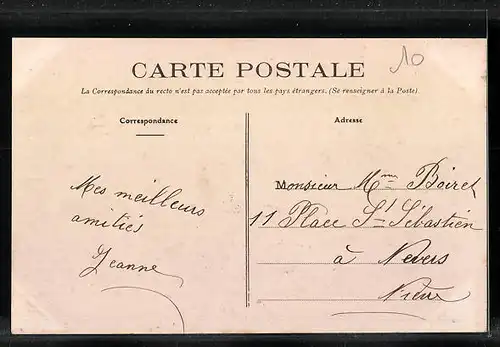 10
CARTE POSTALE
La Correspondance du recto n'est pas acceptée par tous les pays étrangers. (Se renseigner à la Poste)
Correspondance
Mes meilleurs
amitiés
Jeanne
Adresse
Monsieur Mme Boiret
11 Place St Sébastien
à Nevers
Nièvre